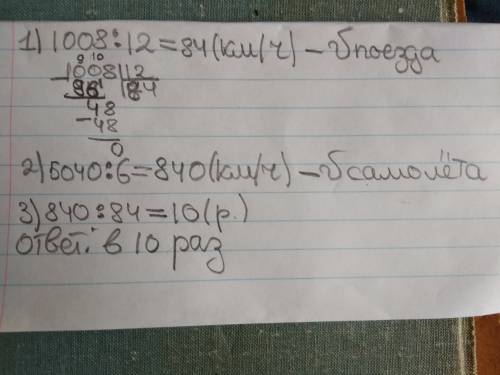 1) 1008:12=84(км/ч) – υ поезда
9 10
1008 12
96 84
48
– 48
0
2) 5040:6=840(км/ч) – υ самолёта
3) 840:84=10(р.)
ответ: в 10 раз